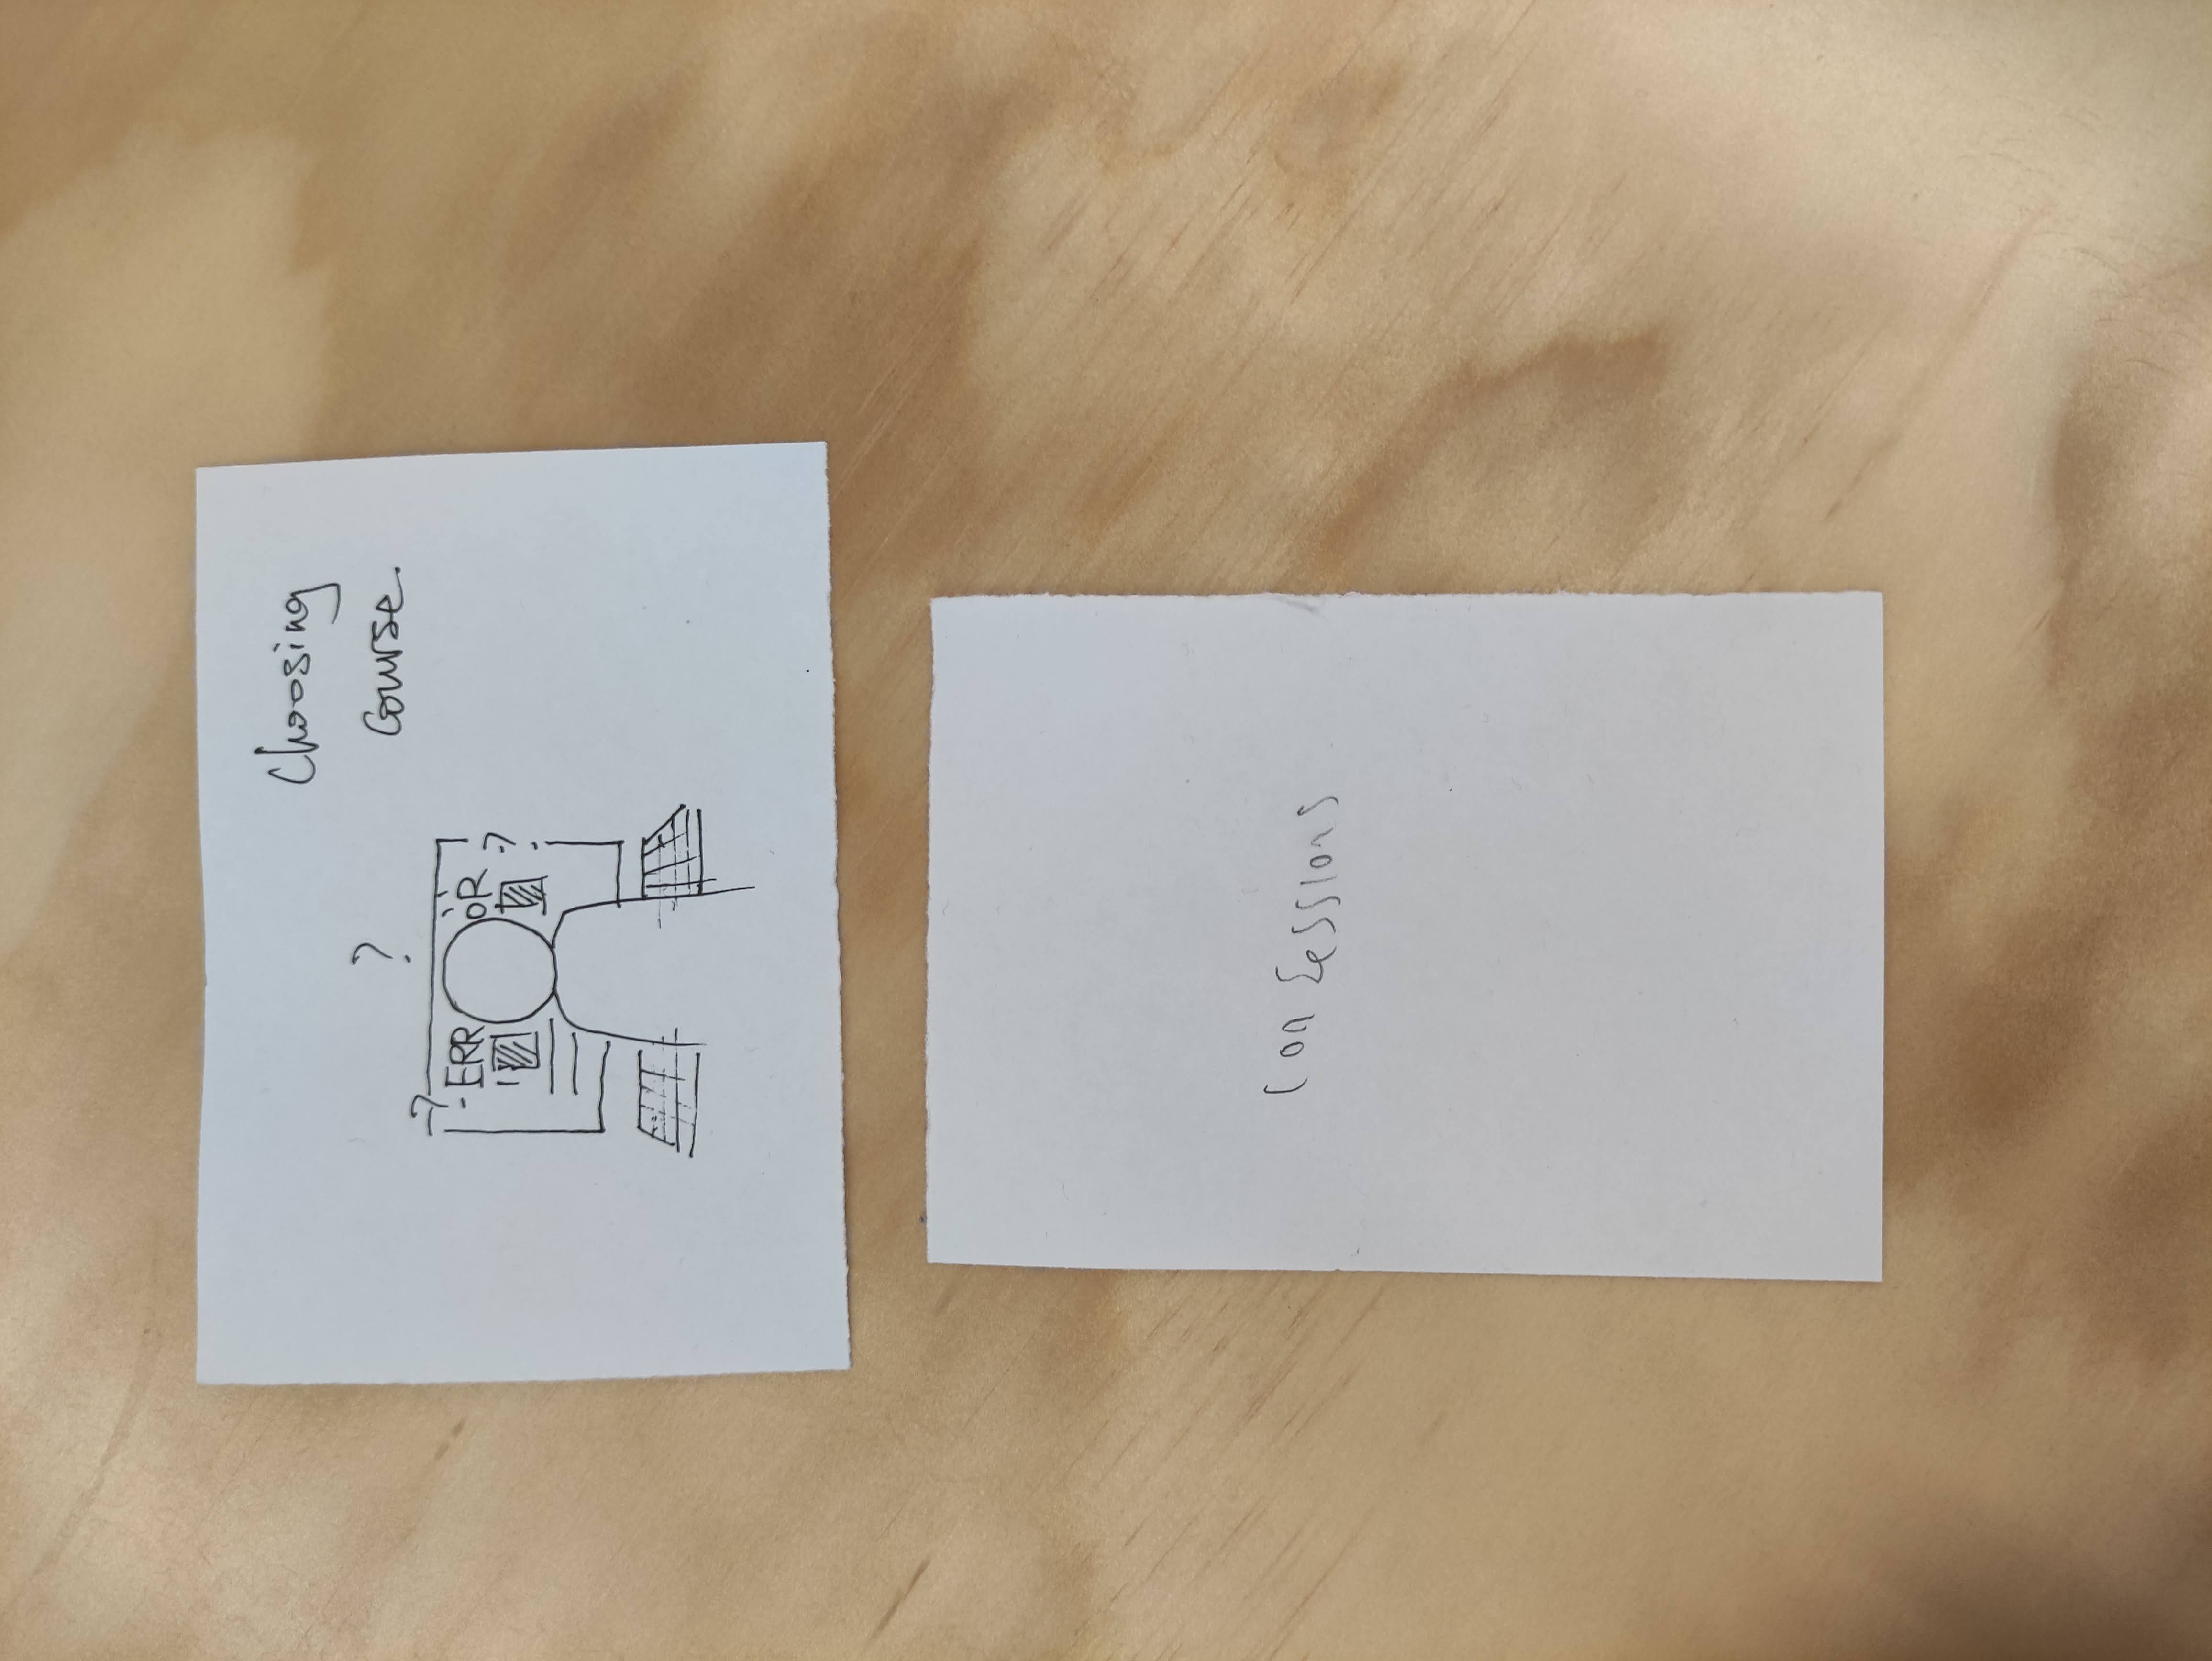 Choosing
Course.
?
?
ERR OR
?
Confessions